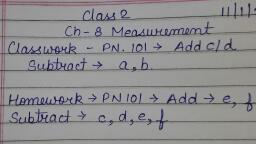 Class 2 11/1/
Ch-8 Measurement
Classwork - PN. 101 → Add c/d
Subtract → a, b.
Homework → PN 101 → Add → e, f
Subtract → c, d, e, f